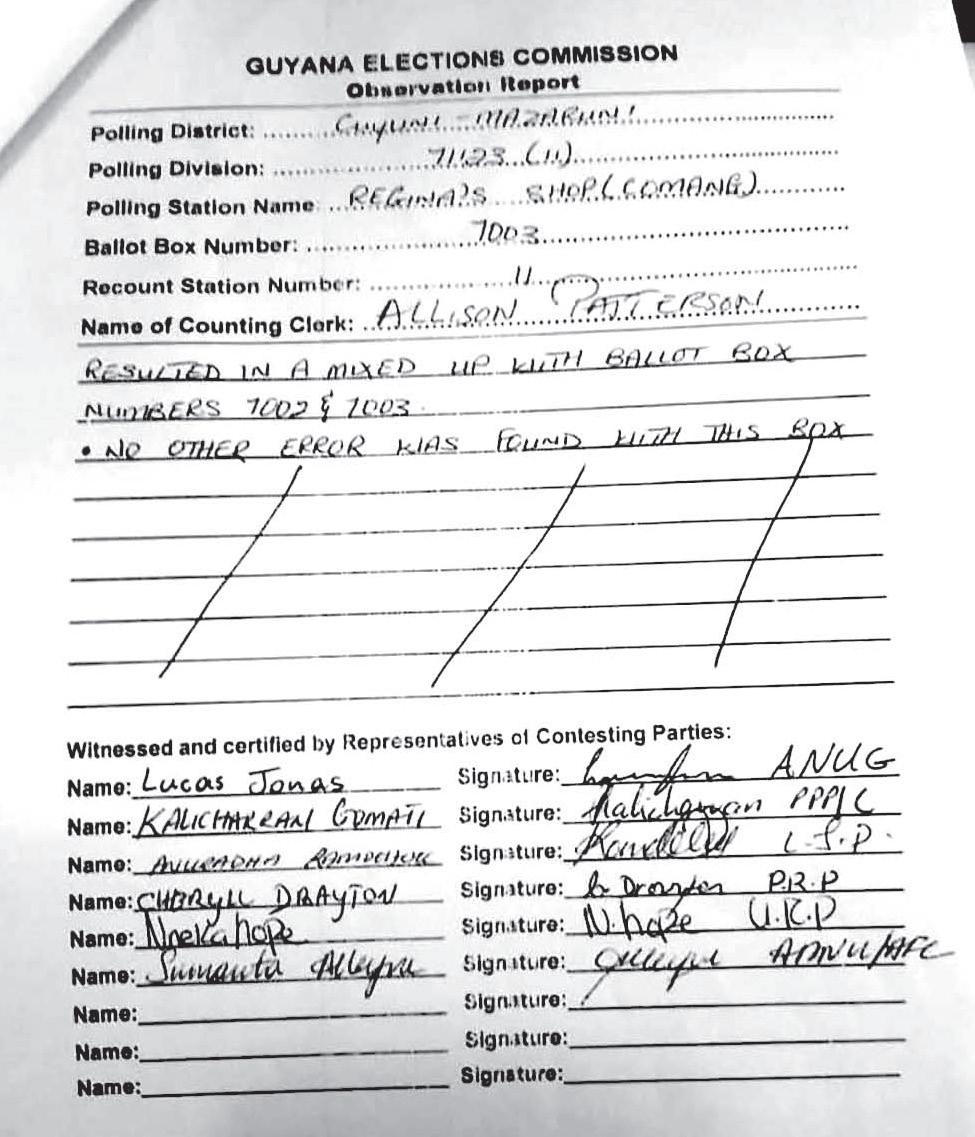 GUYANA ELECTIONS COMMISSION
Observation Report
Polling District: CUYUNI - MAZARUNI
Polling Division: 71123 (11)
Polling Station Name REGINA'S SHOP (COMANG)
Ballot Box Number: 7003
Recount Station Number: 11
Name of Counting Clerk: ALLISON PATTERSON
RESULTED IN A MIXED UP WITH BALLOT BOX
NUMBERS 7002 & 7003
• NO OTHER ERROR WAS FOUND WITH THIS BOX
Witnessed and certified by Representatives of Contesting Parties:
Name: Lucas Jonas Signature: ANUG
Name: KALICHARRAN GOMATI Signature: Kalicharran PPP/C
Name: ANURADHA Signature: L.J.P.
Name: CHERYLL DRAYTON Signature: C Drayton P.R.P
Name: Noeka hope Signature: N. hope U.R.P
Name: Alleyne Signature: APNU/AFC
Name: Signature:
Name: Signature:
Name: Signature: